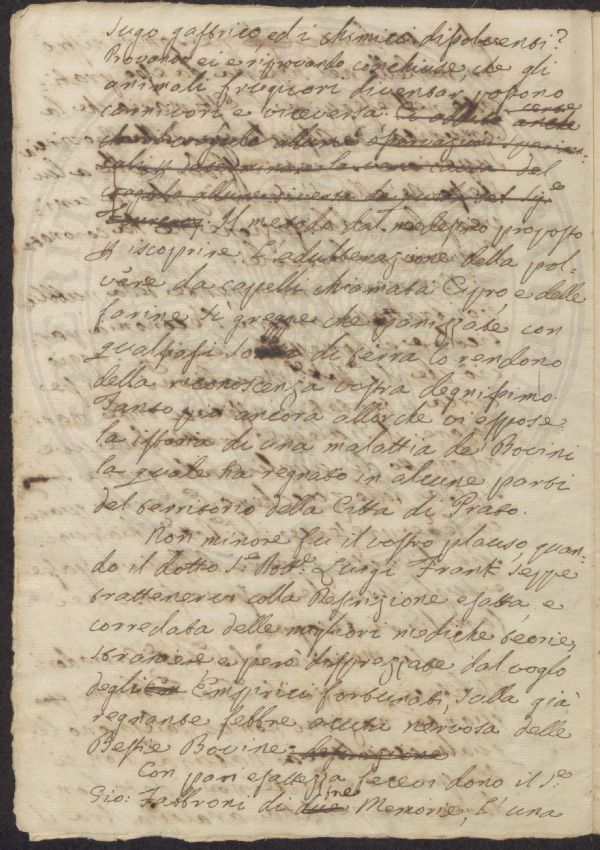 sugo gastrico, ed i chimici dissolventi?
Provando ei e riprovando conchiuse che gli
animali frugivori diventar possono
carnivori e viceversa.
del
Il metodo dal medesimo proposto
p iscoprire L'adulterazione della pol-
vere da capelli chiamata Cipro e delle
farine sì gregge che panizzate con
qualsasi di terra lo rendono
della riconoscenza vostra degnissimo.
Tanto più ancora allorchè vi espose
la istoria di una malattia de Bovini
la quale ha regnato in alcune parti
del territorio della Città di Prato.
Non minore fu il vostro plauso, quan-
do il dotto Sr. Dott.e Luigi Frank seppe
trattenervi colla Descrizione esatta, e
corredata delle migliori mediche teorie,
straniere e però disprezzate dal voglo
degli Empirici fortunati, sulla già
regnante febbre acuta nervosa delle
Bestie Bovine. descrizione
Con pari esattezza fecevi dono il Sr.
Gio: Fabbroni di due Memorie, L'una